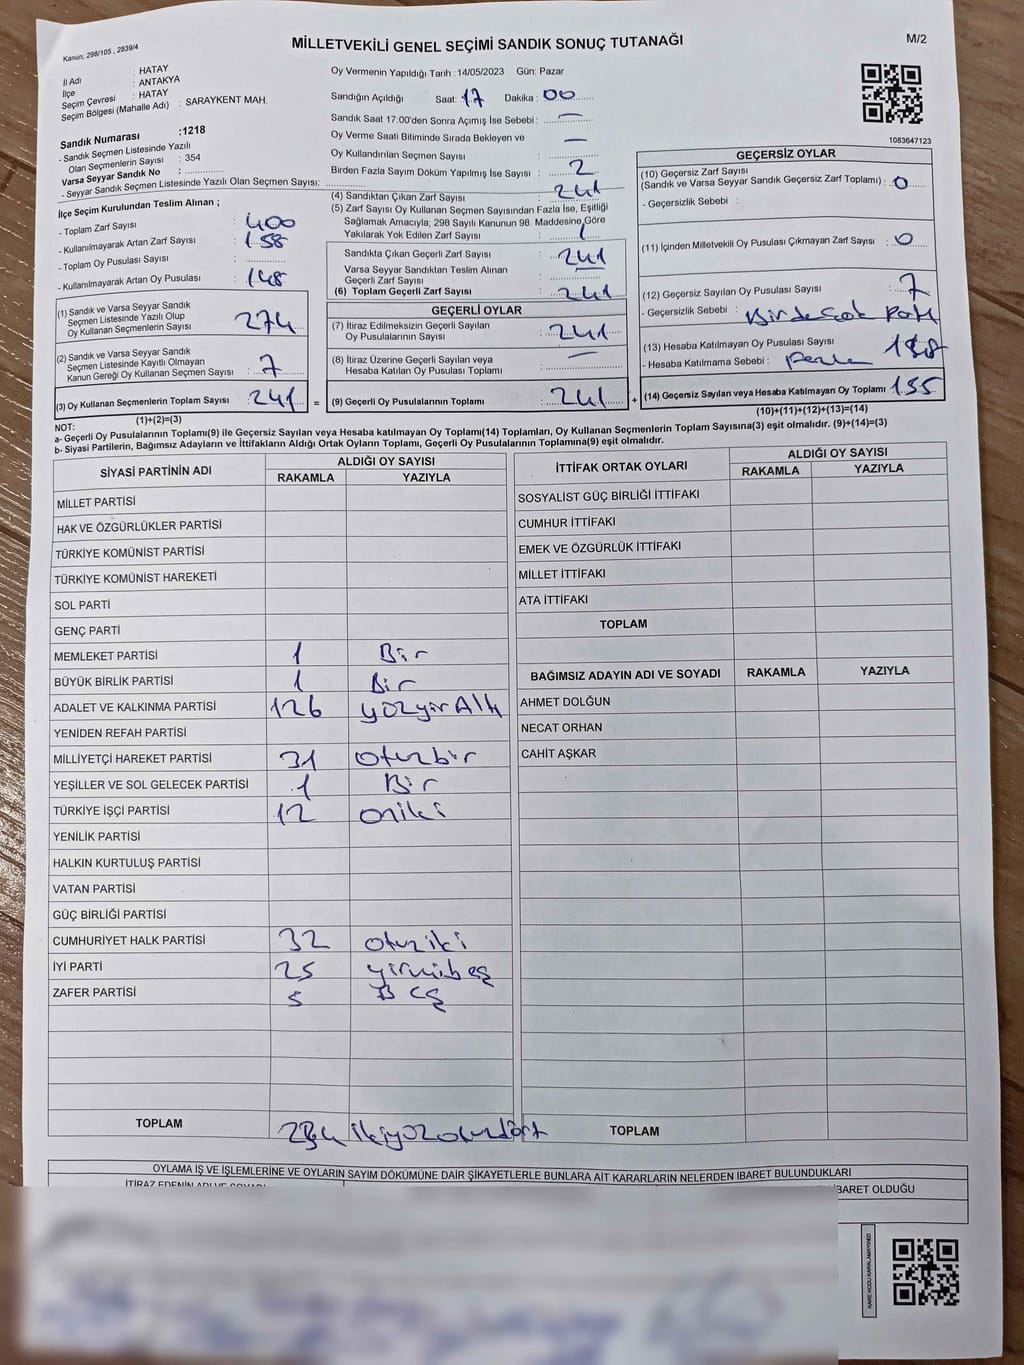 Kanun; 298/105 , 2839/4
MİLLETVEKİLİ GENEL SEÇİMİ SANDIK SONUÇ TUTANAĞI
M/2
İl Adı : HATAY
İlçe : ANTAKYA
Seçim Çevresi : HATAY
Seçim Bölgesi (Mahalle Adı) : SARAYKENT MAH.
Sandık Numarası :1218
- Sandık Seçmen Listesinde Yazılı
Olan Seçmenlerin Sayısı : 354
Varsa Seyyar Sandık No :
- Seyyar Sandık Seçmen Listesinde Yazılı Olan Seçmen Sayısı:
Oy Vermenin Yapıldığı Tarih :14/05/2023 Gün: Pazar
Sandığın Açıldığı Saat: 17 Dakika : 00
Sandık Saat 17:00'den Sonra Açımış İse Sebebi : —
Oy Verme Saati Bitiminde Sırada Bekleyen ve
Oy Kullandırılan Seçmen Sayısı : —
Birden Fazla Sayım Döküm Yapılmış İse Sayısı : 2
1083647123
İlçe Seçim Kurulundan Teslim Alınan ;
- Toplam Zarf Sayısı : 400
- Kullanılmayarak Artan Zarf Sayısı : 158
- Toplam Oy Pusulası Sayısı :
- Kullanılmayarak Artan Oy Pusulası : 148
(1) Sandık ve Varsa Seyyar Sandık
Seçmen Listesinde Yazılı Olup
Oy Kullanan Seçmenlerin Sayısı : 274
(2) Sandık ve Varsa Seyyar Sandık
Seçmen Listesinde Kayıtlı Olmayan
Kanun Gereği Oy Kullanan Seçmen Sayısı : 7
(3) Oy Kullanan Seçmenlerin Toplam Sayısı : 241 =
(1)+(2)=(3)
(4) Sandıktan Çıkan Zarf Sayısı : 241
(5) Zarf Sayısı Oy Kullanan Seçmen Sayısından Fazla İse, Eşitliği
Sağlamak Amacıyla; 298 Sayılı Kanunun 98. Maddesine Göre
Yakılarak Yok Edilen Zarf Sayısı :
Sandıkta Çıkan Geçerli Zarf Sayısı : 241
Varsa Seyyar Sandıktan Teslim Alınan
Geçerli Zarf Sayısı : —
(6) Toplam Geçerli Zarf Sayısı : 241
GEÇERLİ OYLAR
(7) İtiraz Edilmeksizin Geçerli Sayılan
Oy Pusulalarının Sayısı : 241
(8) İtiraz Üzerine Geçerli Sayılan veya
Hesaba Katılan Oy Pusulası Toplamı : —
(9) Geçerli Oy Pusulalarının Toplamı : 241 +
GEÇERSİZ OYLAR
(10) Geçersiz Zarf Sayısı
(Sandık ve Varsa Seyyar Sandık Geçersiz Zarf Toplamı) : 0
- Geçersizlik Sebebi :
(11) İçinden Milletvekili Oy Pusulası Çıkmayan Zarf Sayısı : 0
(12) Geçersiz Sayılan Oy Pusulası Sayısı : 7
- Geçersizlik Sebebi :
(13) Hesaba Katılmayan Oy Pusulası Sayısı : 148
- Hesaba Katılmama Sebebi :
(14) Geçersiz Sayılan veya Hesaba Katılmayan Oy Toplamı : 155
(10)+(11)+(12)+(13)=(14)
NOT:
a- Geçerli Oy Pusulalarının Toplamı(9) ile Geçersiz Sayılan veya Hesaba Katılmayan Oy Toplamı(14) Toplamları, Oy Kullanan Seçmenlerin Toplam Sayısına(3) eşit olmalıdır. (9)+(14)=(3)
b- Siyasi Partilerin, Bağımsız Adayların ve İttifakların Aldığı Ortak Oyların Toplamı, Geçerli Oy Pusulalarının Toplamına(9) eşit olmalıdır.
SİYASİ PARTİNİN ADI ALDIĞI OY SAYISI
RAKAMLA YAZIYLA
MİLLET PARTİSİ
HAK VE ÖZGÜRLÜKLER PARTİSİ
TÜRKİYE KOMÜNİST PARTİSİ
TÜRKİYE KOMÜNİST HAREKETİ
SOL PARTİ
GENÇ PARTİ
MEMLEKET PARTİSİ 1 Bir
BÜYÜK BİRLİK PARTİSİ 1 Bir
ADALET VE KALKINMA PARTİSİ 126 yüzyirAltı
YENİDEN REFAH PARTİSİ
MİLLİYETÇİ HAREKET PARTİSİ 31 otuzbir
YEŞİLLER VE SOL GELECEK PARTİSİ 1 Bir
TÜRKİYE İŞÇİ PARTİSİ 12 oniki
YENİLİK PARTİSİ
HALKIN KURTULUŞ PARTİSİ
VATAN PARTİSİ
GÜÇ BİRLİĞİ PARTİSİ
CUMHURİYET HALK PARTİSİ 32 otuziki
İYİ PARTİ 25 yirmibeş
ZAFER PARTİSİ 5 Beş
TOPLAM 234 ikiyüzotuzdört
İTTİFAK ORTAK OYLARI ALDIĞI OY SAYISI
RAKAMLA YAZIYLA
SOSYALİST GÜÇ BİRLİĞİ İTTİFAKI
CUMHUR İTTİFAKI
EMEK VE ÖZGÜRLÜK İTTİFAKI
MİLLET İTTİFAKI
ATA İTTİFAKI
TOPLAM
BAĞIMSIZ ADAYIN ADI VE SOYADI RAKAMLA YAZIYLA
AHMET DOLĞUN
NECAT ORHAN
CAHİT AŞKAR
TOPLAM
OYLAMA İŞ VE İŞLEMLERİNE VE OYLARIN SAYIM DÖKÜMÜNE DAİR ŞİKAYETLERLE BUNLARA AİT KARARLARIN NELERDEN İBARET BULUNDUKLARI
İTİRAZ EDENİN ADI VE SOYADI
İBARET OLDUĞU
KARE KODU KARALAMAYINIZ!